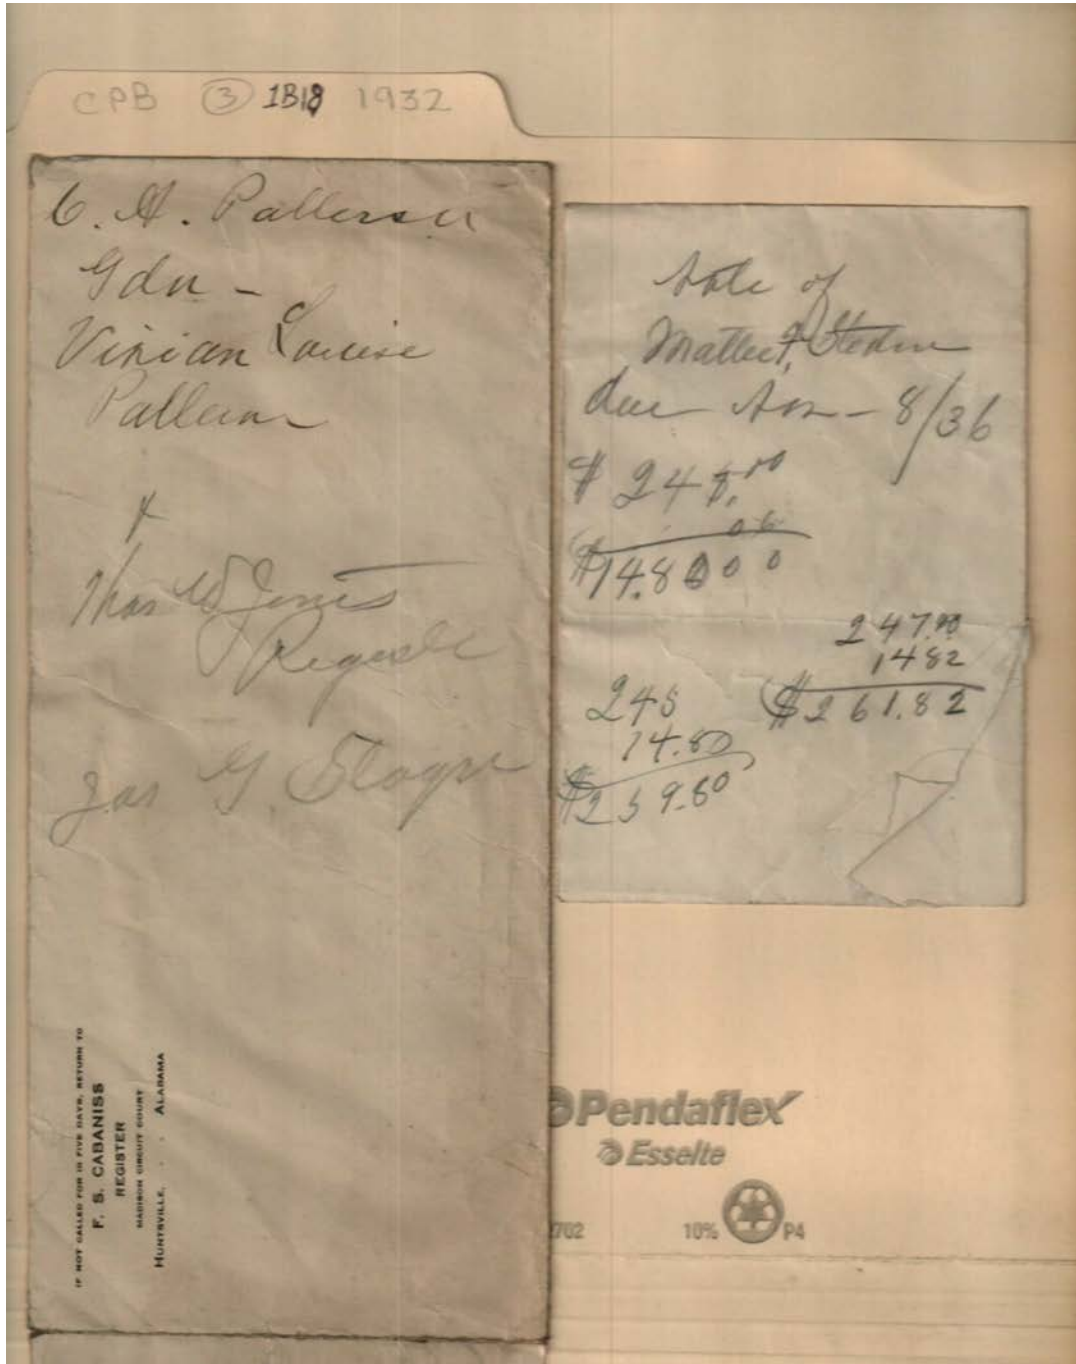 CPB ③ 1B18 1932
C. H. Patterson
Gdn -
Vivian Louise
Patterson
Thos W Jones
Register
Jas G.
IF NOT CALLED FOR IN FIVE DAYS, RETURN TO
F. S. CABANISS
REGISTER
MADISON CIRCUIT COURT
HUNTSVILLE, - ALABAMA
of
due - 8/36
06
247.00
1482
$261.82
245
14.80
$259.80
Pendaflex
Esselte
702 10% P4